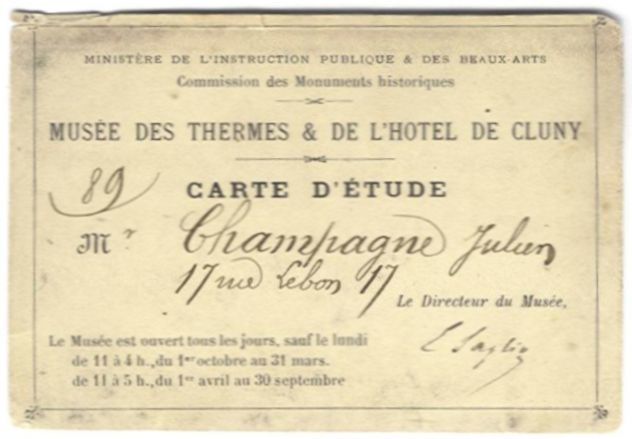 MINISTÈRE DE L'INSTRUCTION PUBLIQUE & DES BEAUX-ARTS
Commission des Monuments historiques
MUSÉE DES THERMES & DE L'HOTEL DE CLUNY
89
CARTE D'ÉTUDE
Mr Champagne Julien
17 rue Lebon 17
Le Directeur du Musée,
E Saglio
Le Musée est ouvert tous les jours, sauf le lundi
de 11 à 4 h., du 1er octobre au 31 mars.
de 11 à 5 h., du 1er avril au 30 septembre